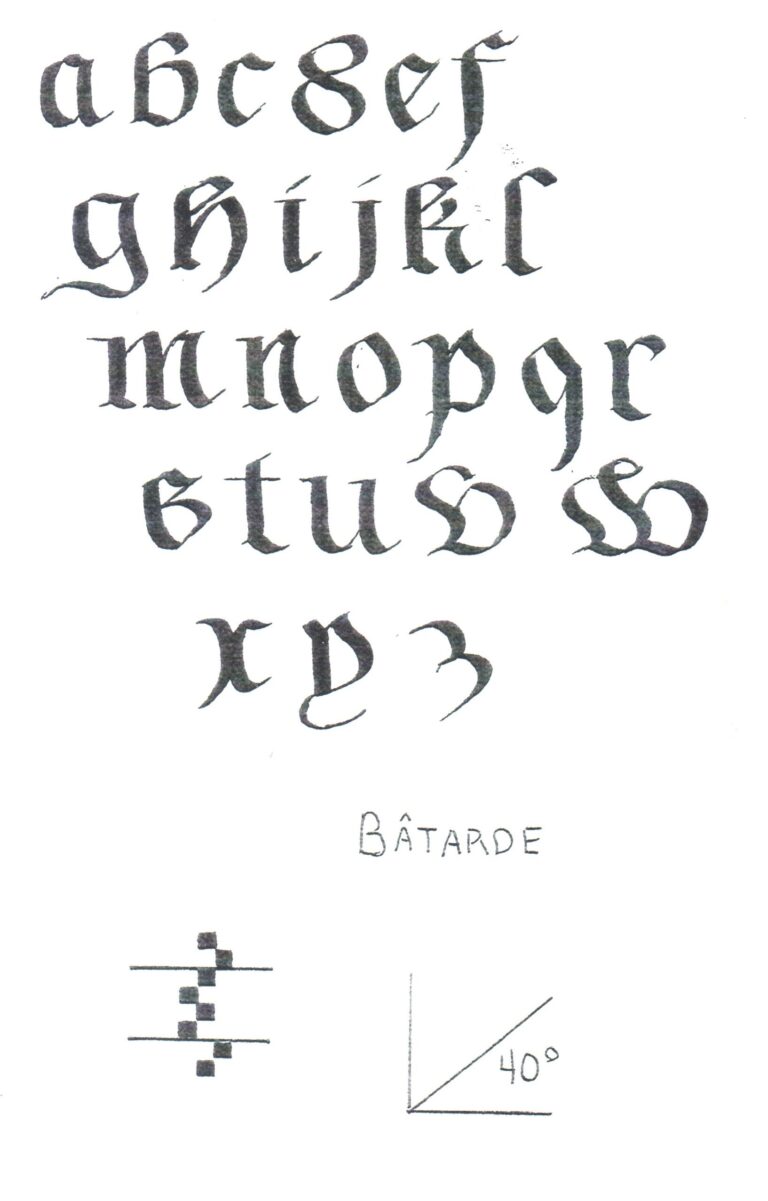 abcdef
ghijkl
mnopqr
stuvw
xyz
BÂTARDE
40°